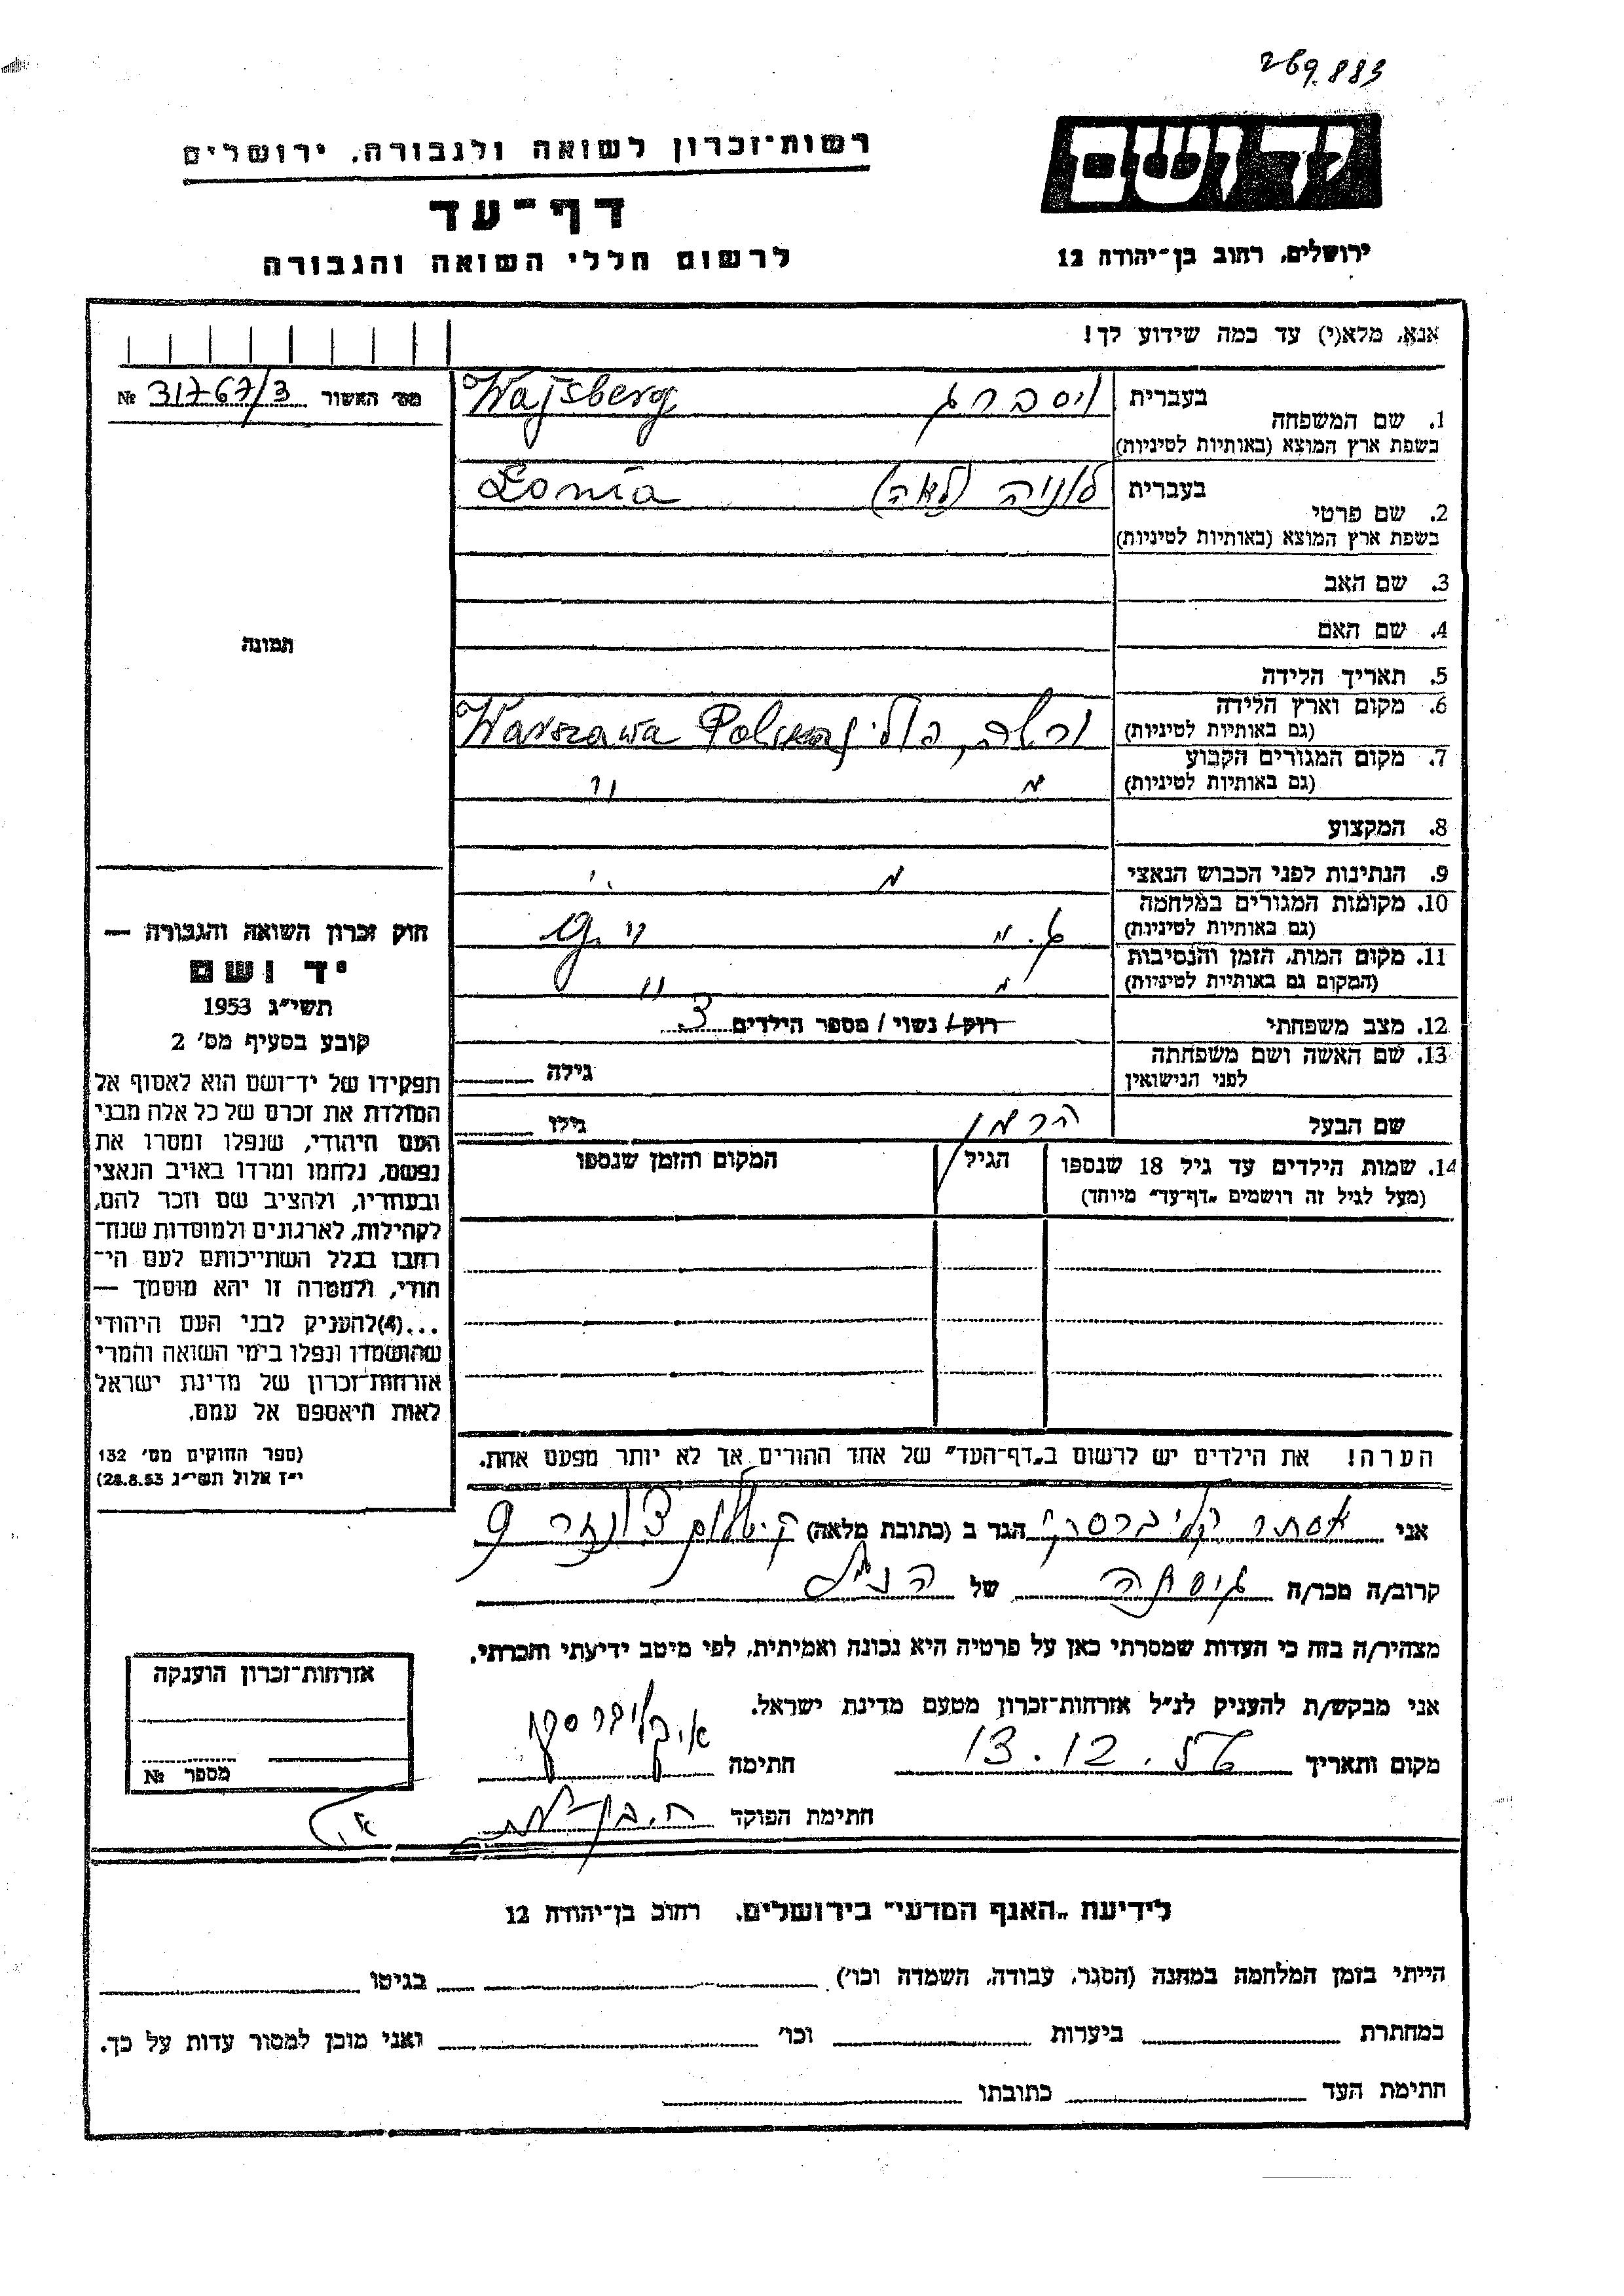 269.883
יד ושם
רשות־זכרון לשואה ולגבורה, ירושלים
דף־עד
ירושלים, רחוב בן־יהודה 12
לרשום חללי השואה והגבורה
אנא, מלא(י) עד כמה שידוע לך!
מס׳ האשור 31767/3 №
1. שם המשפחה
בעברית ויסברג Wajsberg
בשפת ארץ המוצא (באותיות לטיניות)
2. שם פרטי
בעברית לוניה (לאה) Lonia
בשפת ארץ המוצא (באותיות לטיניות)
3. שם האב
4. שם האם
תמונה
5. תאריך הלידה
6. מקום וארץ הלידה
(גם באותיות לטיניות) Warszawa
7. מקום המגורים הקבוע
(גם באותיות לטיניות)
8. המקצוע
9. הנתינות לפני הכבוש הנאצי
10. מקומות המגורים במלחמה
(גם באותיות לטיניות)
11. מקום המות, הזמן והנסיבות
(המקום גם באותיות לטיניות)
12. מצב משפחתי רוק/ נשוי / מספר הילדים 3
13. שם האשה ושם משפחתה
לפני הנישואין גילה
שם הבעל הרמן גילו
14. שמות הילדים עד גיל 18 שנספו הגיל המקום והזמן שנספו
(מעל לגיל זה רושמים „דף־עד״ מיוחד)
חוק זכרון השואה והגבורה —
יד ושם
תשי״ג 1953
קובע בסעיף מס׳ 2
תפקידו של יד־ושם הוא לאסוף אל
המולדת את זכרם של כל אלה מבני
העם היהודי, שנפלו ומסרו את
נפשם, נלחמו ומרדו באויב הנאצי
ובעוזריו, ולהציב שם וזכר להם,
לקהילות, לארגונים ולמוסדות שנח־
רבו בגלל השתייכותם לעם הי־
הודי, ולמטרה זו יהא מוסמך —
...(4)להעניק לבני העם היהודי
שהושמדו ונפלו בימי השואה והמרי
אזרחות־זכרון של מדינת ישראל
לאות היאספם אל עמם.
(ספר החוקים מס׳ 132
י״ז אלול תשי״ג 28.8.53)
הערה! את הילדים יש לרשום ב„דף־העד״ של אחד ההורים אך לא יותר מפעם אחת.
אני אסתר הגר ב (כתובת מלאה) 9
קרוב/ה מכר/ה גיסתה של הנ״ל
מצהיר/ה בזה כי העדות שמסרתי כאן על פרטיה היא נכונה ואמיתית, לפי מיטב ידיעתי והכרתי.
אני מבקש/ת להעניק לנ״ל אזרחות־זכרון מטעם מדינת ישראל.
מקום ותאריך 13.12. חתימה
חתימת הפוקד
אזרחות־זכרון הוענקה
מספר №
לידיעת „האגף המדעי״ בירושלים, רחוב בן־יהודה 12
הייתי בזמן המלחמה במחנה (הסגר, עבודה, השמדה וכו׳) בגיטו
במחתרת ביערות וכו׳ ואני מוכן למסור עדות על כך.
חתימת העד כתובתו